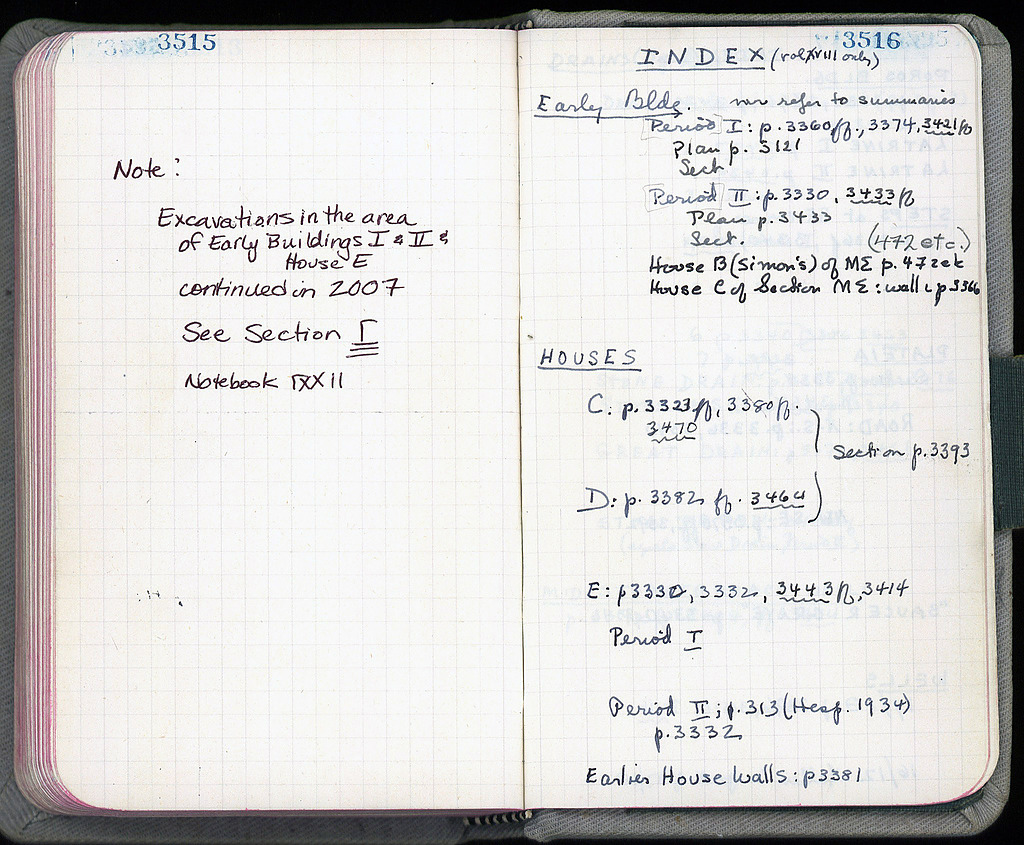 3515
Note:
Excavations in the area
of Early Buildings I & II &
House E
continued in 2007
See Section Γ
Notebook ΓXXII
3516
INDEX (vol XVIII only)
Early Bldg. refer to summaries
Period I: p. 3360ff., 3374, 3421ff
Plan p. 3121
Sect
Period II: p. 3330, 3433ff
Plan p. 3433
Sect. (472 etc.)
House B (Simon's) of ΜΣ p. 472
House C of Section ΜΣ: wall p 3366
HOUSES
C: p. 3323ff, 3380ff.
3470
Section p. 3393
D: p. 3382 ff. 3464
E: p3330, 3332, 3443ff, 3414
Period I
Period II; p. 313 (Hesp. 1934)
p. 3332
Earlier House walls: p3381